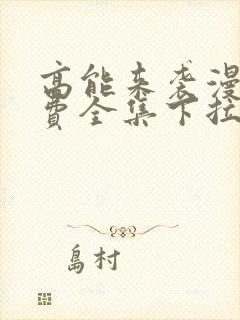 高能来袭漫
费全集下拉
島村